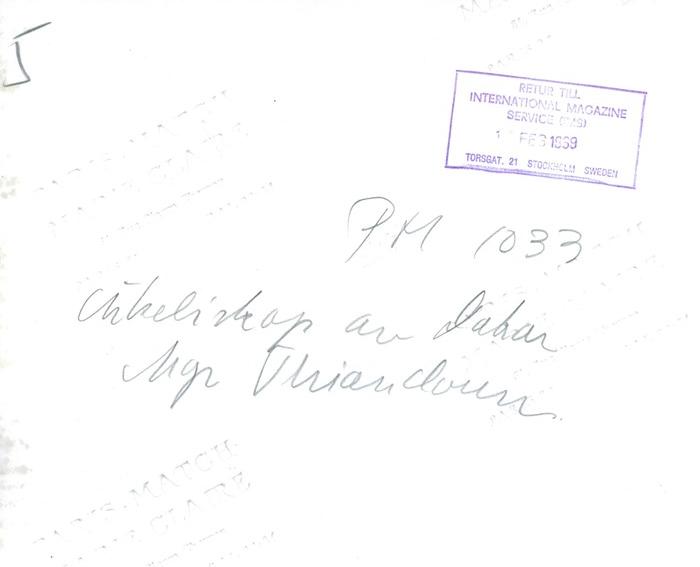 5
RETUR TILL
INTERNATIONAL MAGAZINE
SERVICE (IMS)
FEB 1969
TORSGAT. 21 STOCKHOLM SWEDEN
PM 1033
Ärkebiskop av Dakar
Mgr Thiandoum
PARIS-MATCH
MARIE CLAIRE
PARIS-MATCH
MARIE CLAIRE